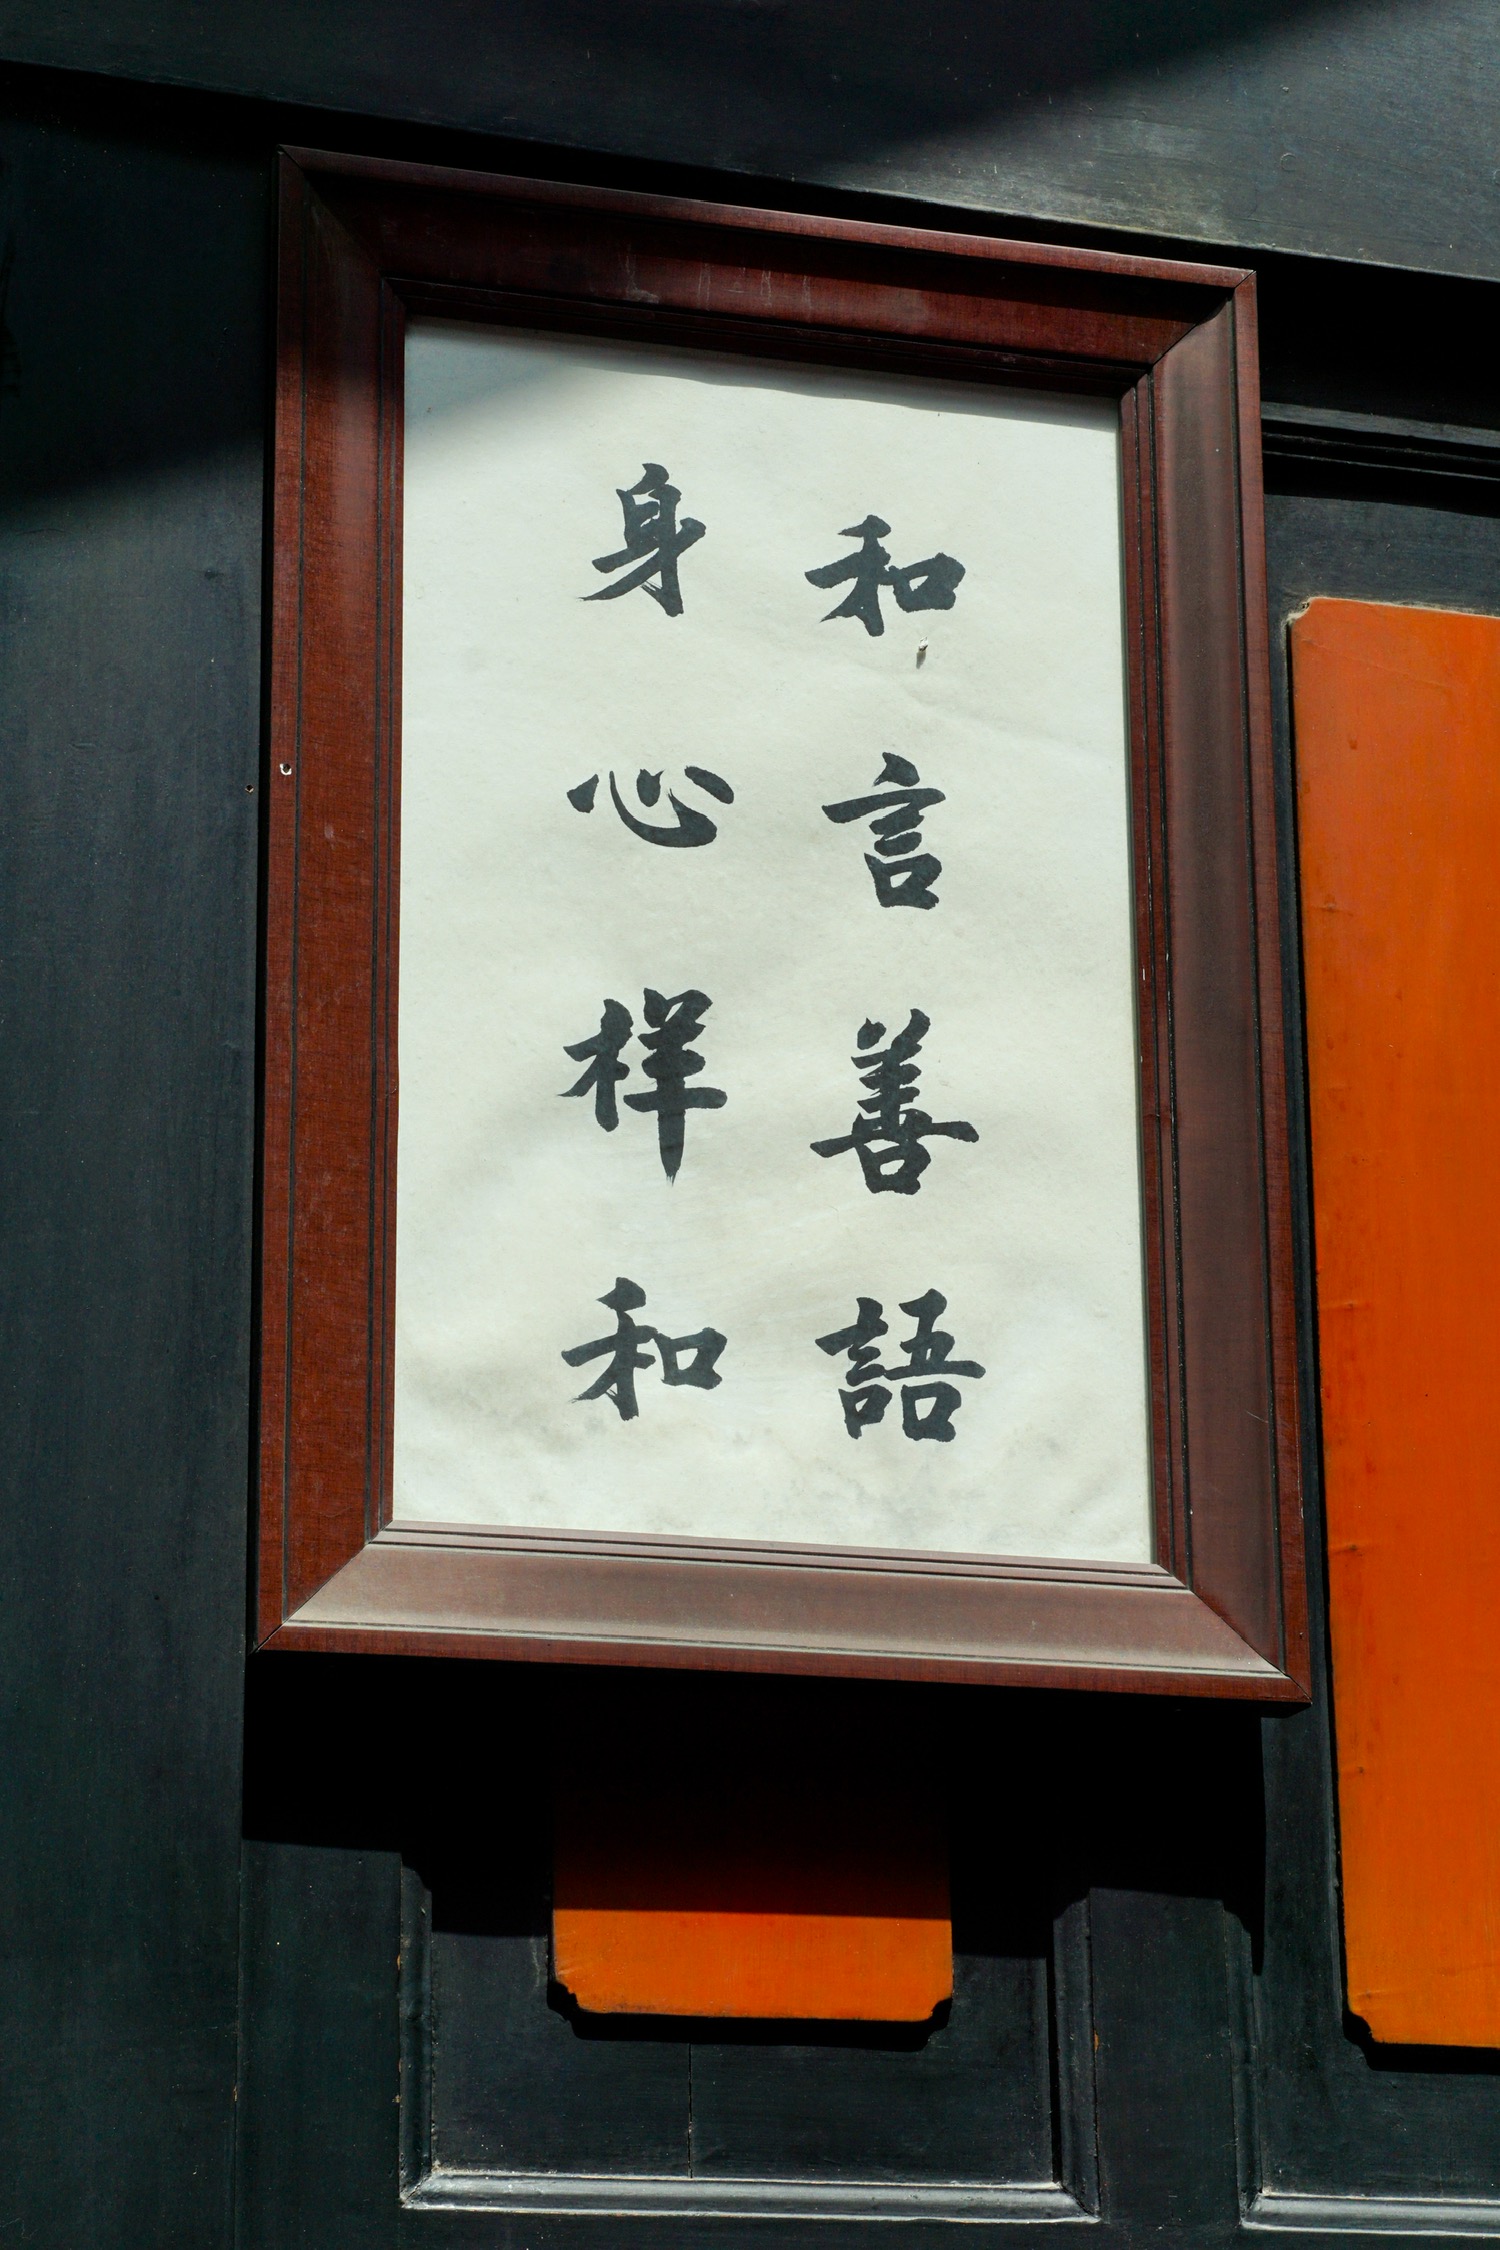 和言善語
身心样和